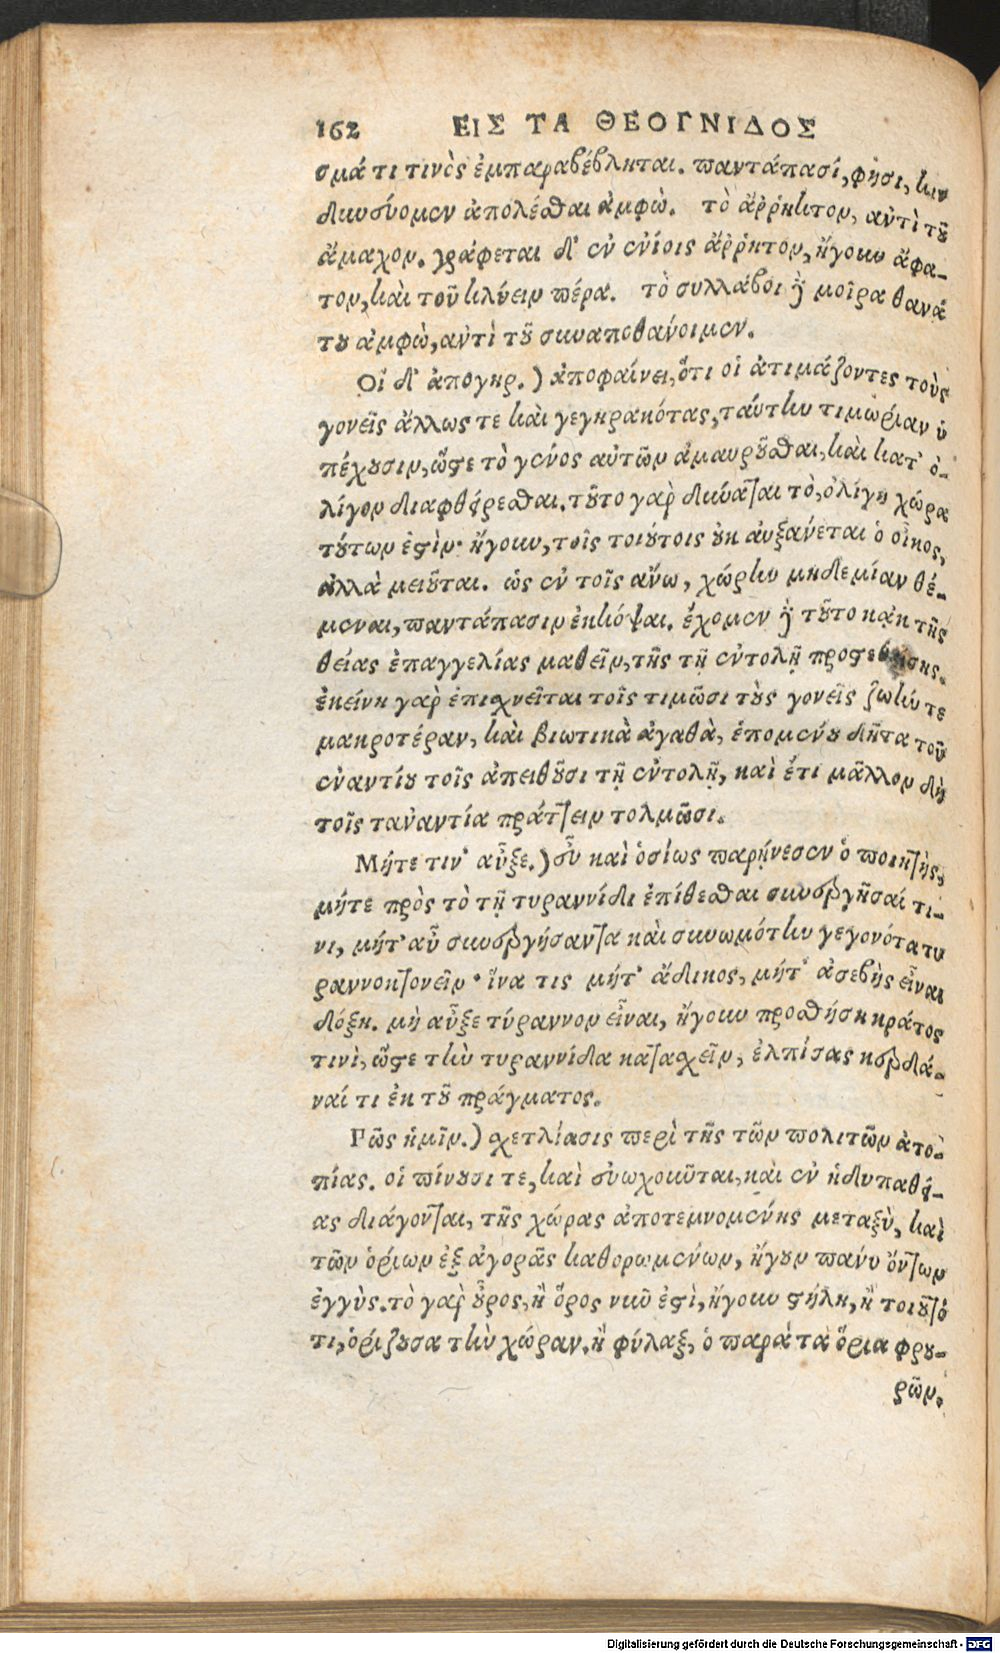 162 ΕΙΣ ΤΑ ΘΕΟΓΝΙΔΟΣ
σμά τι τινὸς ἐμπαραβέβληται. παντάπασί, φησι, κιν
δυνεύομεν ἀπολέσθαι ἄμφω. τὸ ἄῤῥηκτον, ἀντὶ τοῦ
ἄμαχον. γράφεται δ' ἐν ἐνίοις ἄῤῥητον, ἤγουν ἄφα-
τον, καὶ τοῦ κλύειν πέρα. τὸ συλλάβοι δὲ μοῖρα θανά
του ἄμφω, ἀντὶ τοῦ συναποθάνοιμεν.
Οἵ δ' ἀπογηρ.) ἀποφαίνει, ὅτι οἱ ἀτιμάζοντες τοὺς
γονεῖς ἄλλως τε καὶ γεγηρακότας, ταύτην τιμωρίαν ὑ
πέχουσιν, ὥστε τὸ γένος αὐτῶν ἀμαυροῦσθαι, καὶ κατ' ὀ-
λίγον διαφθείρεσθαι. τοῦτο γὰρ δύναται τὸ, ὀλίγη χώρα
τούτων ἐστίν· ἤγουν, τοῖς τοιούτοις οὐκ αὐξάνεται ὁ οἶκος,
ἀλλὰ μειοῦται. ὡς ἐν τοῖς ἄνω, χώρην μηδεμίαν θέ-
μεναι, παντάπασιν ἐκκόψαι. ἔχομεν δὲ τοῦτο κἀκ τῆς
θείας ἐπαγγελίας μαθεῖν, τῆς τῇ ἐντολῇ προστεθείσης.
ἐκείνη γὰρ ἐπισχνεῖται τοῖς τιμῶσι τοὺς γονεῖς ζωήν τε
μακροτέραν, καὶ βιωτικὰ ἀγαθὰ, ἑπομένου δῆτα τοῦ
ἐναντίου τοῖς ἀπειθοῦσι τῇ ἐντολῇ, καὶ ἔτι μᾶλλον δὴ
τοῖς ταναντία πράττειν τολμῶσι.
Μήτε τιν' αὖξε.) εὖ καὶ ὁσίως παρῄνεσεν ὁ ποιητὴς,
μήτε πρὸς τὸ τῇ τυραννίδι ἐπίθεσθαι συνεργῆσαί τι-
νι, μήτ' αὖ συνεργήσαντα καὶ συνωμότην γεγονότα τυ
ραννοκτονεῖν· ἵνα τις μήτ' ἄδικος, μήτ' ἀσεβὴς εἶναι
δόξῃ. μὴ αὖξε τύραννον εἶναι, ἤγουν προσθήσῃ κράτος
τινὶ, ὥστε τὴν τυραννίδα κατασχεῖν, ἐλπίσας κερδά-
ναί τι ἐκ τοῦ πράγματος.
Γῶς ἡμῖν.) σχετλίασις περὶ τῆς τῶν πολιτῶν ἀτο-
πίας. οἱ πίνουσί τε, καὶ εὐωχοῦνται, καὶ ἐν ἡδυπαθεί-
ας διάγονται, τῆς χώρας ἀποτεμνομένης μεταξὺ, καὶ
τῶν ὁρίων ἐξ ἀγορᾶς καθορωμένων, ἤγουν πάνυ ὄντων
ἐγγύς. τὸ γὰρ οὖρος, ἢ ὅρος νῦν ἐστὶ, ἤγουν στήλη, ἢ τοιοῦτό
τι, ὁρίζουσα τὴν χώραν. ἢ φύλαξ, ὁ παρὰ τὰ ὅρια φρου-
ρῶν.
Digitalisierung gefördert durch die Deutsche Forschungsgemeinschaft - DFG